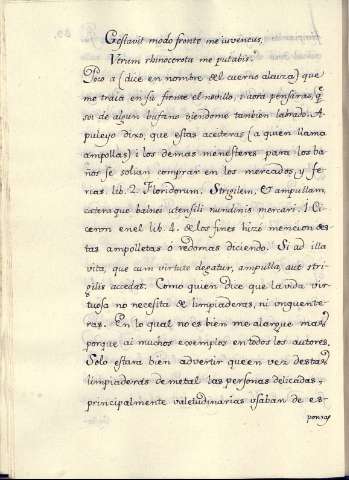 Gestavit modo fronte me iuvencus,
Verum rhinocerota me putabis.
Poco a (dice en nombre del cuerno alcuza) que
me traia en su frente el novillo, i aora pensaras, q̃
soi de algun bufano viendome tambien labrado. A-
puleyo dixo, que estas aceiteras (a quien llama
ampollas) i los demas menesteres para los ba-
ños se solian comprar en los mercados y fe-
rias. lib. 2. Floridorum. Strigilem, & ampullam,
cætera que balnei utensili nundinis mercari. I Ci-
ceron en el lib. 4. de los fines hizo mencion des-
tas ampolletas o redomas diciendo. Si ad illa
vita, que cum virtute degatur, ampulla, aut stri-
gilis accedat. Como quien dice que la vida vir-
tuosa no necesita de limpiaderas, ni unguente-
ras. En lo qual no es bien me alargue mas,
porque ai muchos exemplos en todos los autores.
Solo estara bien advertir que en vez destas
limpiaderas de metal las personas delicadas, i
principalmente valetudinarias usaban de es-
ponjas